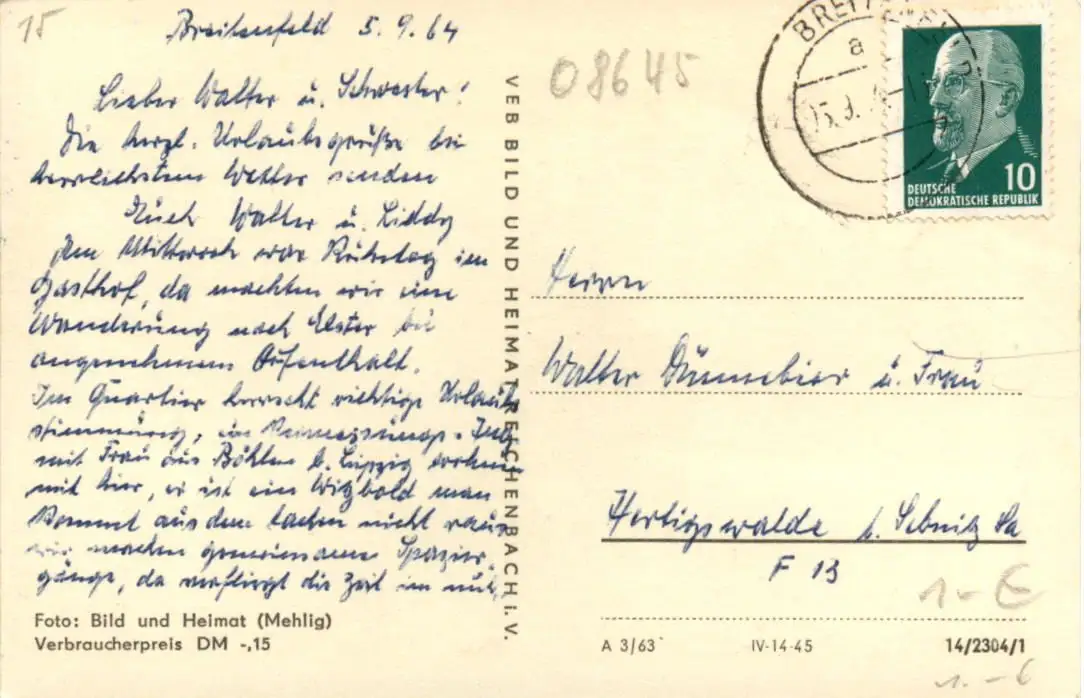 15
Breitenfeld 5.9.64
Lieber Walter u. Schwester!
Die herzl. Urlaubsgrüße bei
herrlichstem Wetter senden
Euch Walter u. Liddy
Am Mittwoch war Ruhetag im
Gasthof, da machten wir eine
Wanderung nach Elster bei
angenehmem Aufenthalt.
Im Quartier herrscht richtige Urlaubs
stimmung, ein Vermessungs-Ing
mit Frau aus Böhlen b. Leipzig wohnt
mit hier, er ist ein Witzbold man
kommt aus dem lachen nicht raus
wir machen gemeinsame Spazier-
gänge, da verfliegt die Zeit im nu.
Foto: Bild und Heimat (Mehlig)
Verbraucherpreis DM -,15
VEB BILD UND HEIMAT REICHENBACH i. V.
08645
a
10
DEUTSCHE
DEMOKRATISCHE REPUBLIK
Herrn
Walter Dünnebier u. Frau
Hertigswalde b. Sebnitz Sa
F 13
1.- €
A 3/63
IV-14-45
14/2304/1
1.- €